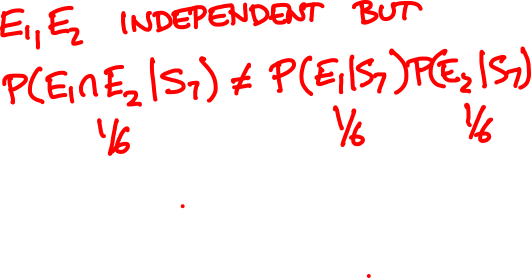 E₁, E₂ INDEPENDENT BUT
P(E₁∩E₂|S₇) ≠ P(E₁|S₇)P(E₂|S₇)
1/6 1/6 1/6